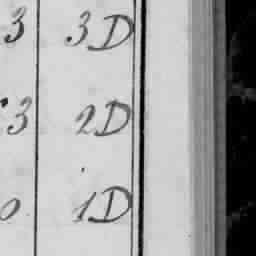 3 3D
3 2D
0 1D